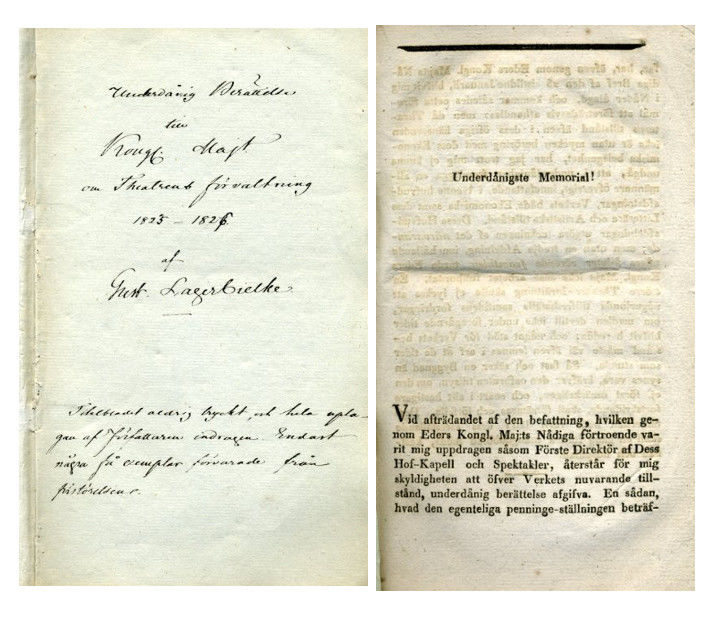 Underdånig Berättelse
till
Kongl. Majt
om Theatrens förvaltning
1823 – 1826
af
Gust. Lagerbielke
Titelbladet aldrig tryckt, och hela upla-
gan af författaren indragen. Endast
några få exemplar förvarade från
förstörelsen.
Underdånigste Memorial!
Vid afträdandet af den befattning, hvilken ge-
nom Eders Kongl. Maj:ts Nådiga förtroende va-
rit mig uppdragen såsom Förste Direktör af Dess
Hof-Kapell och Spektakler, återstår för mig
skyldigheten att öfver Verkets nuvarande till-
stånd, underdånig berättelse afgifva. En sådan,
hvad den egenteliga penninge-ställningen beträf-